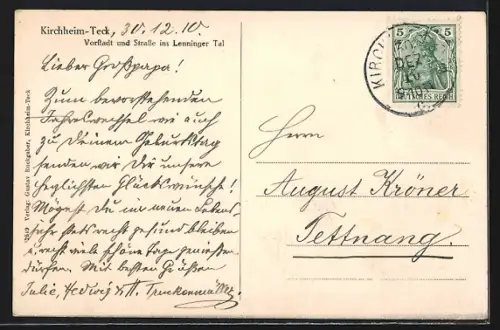 Kirchheim-Teck, 30.12.10.
Vorstadt und Straße ins Lenninger Tal
Lieber Großpapa!
Zum bevorstehenden
Jahreswechsel wie auch
zu Deinem Geburtstag
senden wir Dir unsere
herzlichsten Glückwünsche!
Mögest Du im neuen Lebens-
jahr stets recht gesund bleiben
u. recht viele schöne Tage geniessen
dürfen. Mit besten Grüßen
Julie, Hedwig u. H.
Verlag: Gustav Kirchheim-Teck
5 5
DEUTSCHES REICH
KIRCH
DEZ
10
Herrn
August Kröner
Tettnang.